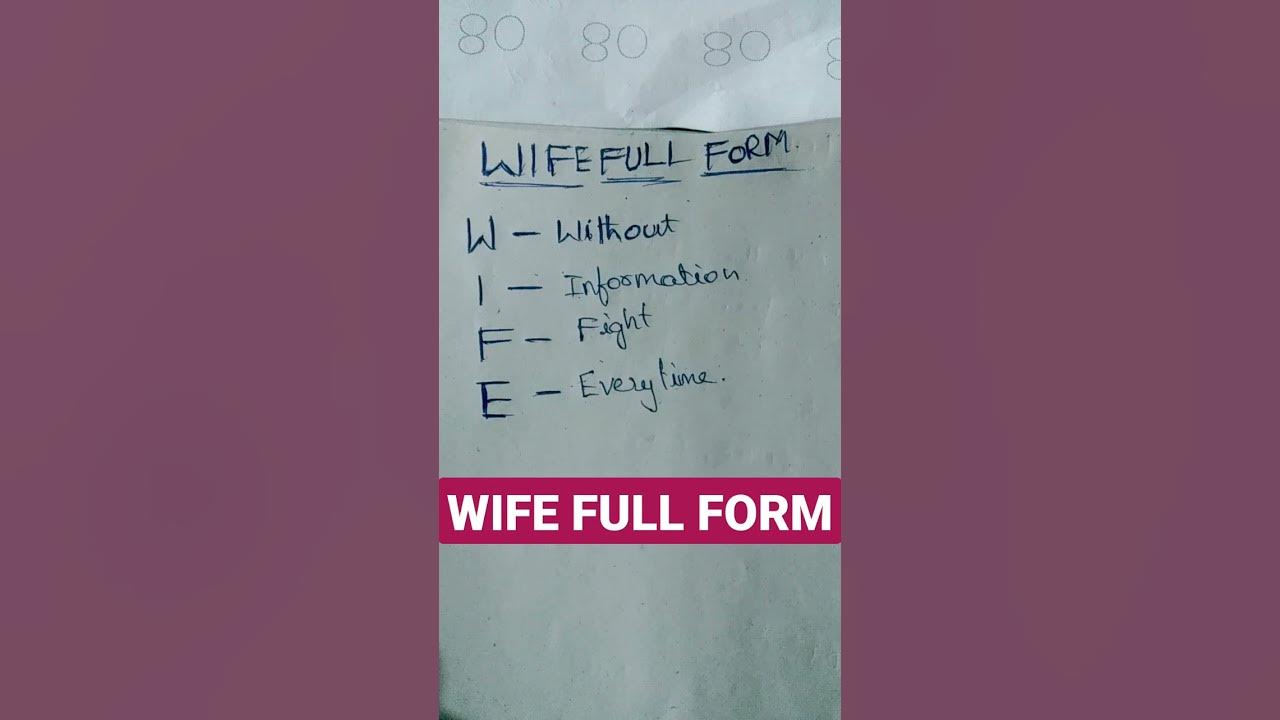 80 80 80 8
WIFE FULL FORM.
W - Without
I - Information
F - Fight
E - Everytime.
WIFE FULL FORM